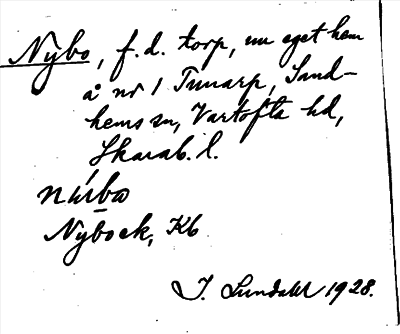 Nybo, f.d. torp, nu eget hem
å nr 1 Tunarp, Sand-
hems sn, Vartofta hd,
Skarab. l.
nẃrbω
Nyboek, Kb
J. Lundahl 1928.